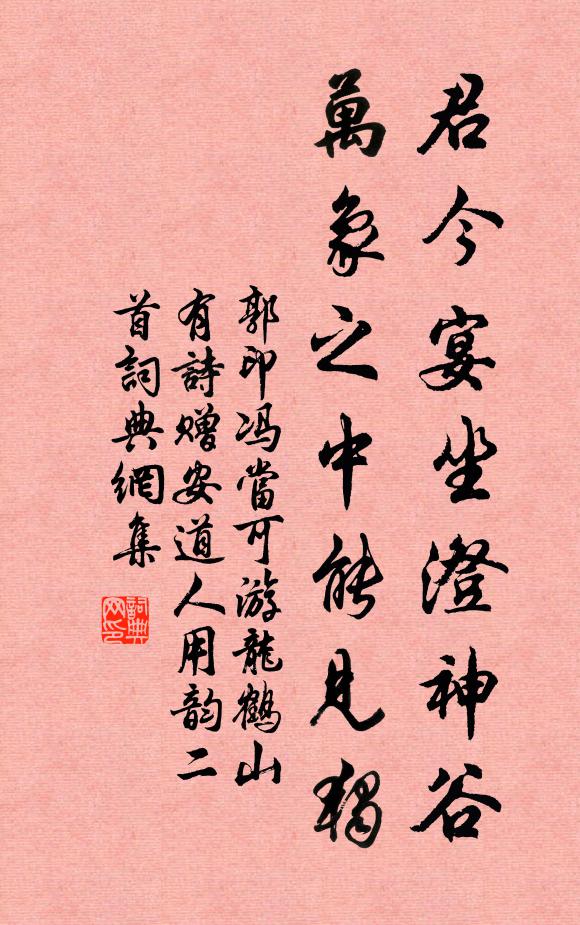 君今宴坐澄神谷
萬象之中能見獨
郭印馮當可游龍鶴山
有詩贈安道人用韵二
首詞典網集
詞典
网印